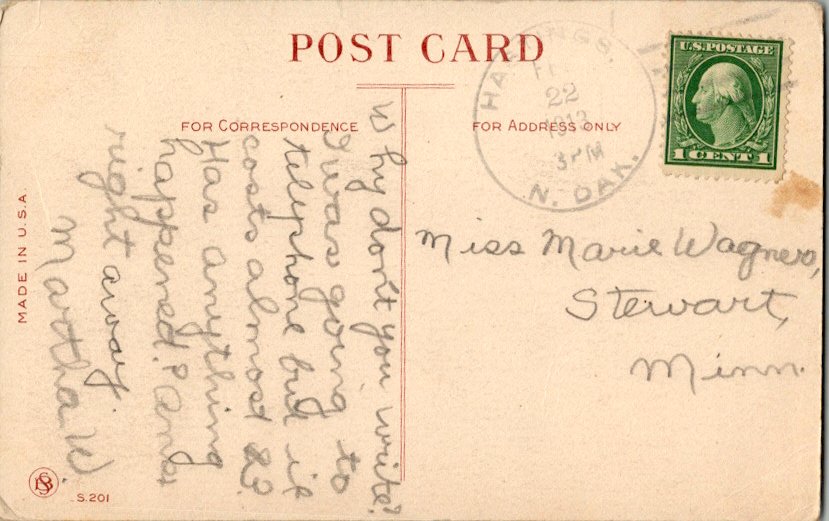 POST CARD
FOR CORRESPONDENCE
FOR ADDRESS ONLY
HASTINGS,
22
1913
3 PM
N. DAK.
U.S. POSTAGE
1 CENT 1
Why don't you write?
I was going to
telephone but it
costs almost
Has anything
happened? Ans
right away.
Martha W.
Miss Marie Wagner,
Stewart,
Minn.
MADE IN U.S.A.
S.201